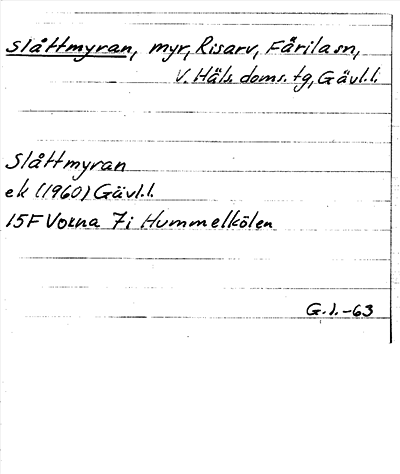 Slåttmyran, myr, Risarv, Färila sn,
V. Häls. doms. tg, Gävl.l.
Slåttmyran
ek (1960) Gävl.l.
15F Voxna 7i Hummelkölen
G.I.-63